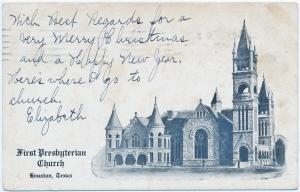 With Best Regards for a
very Merry Christmas
and a Happy New Year.
Here's where I go to
church,
Elizabeth
First Presbyterian
Church
Houston, Texas